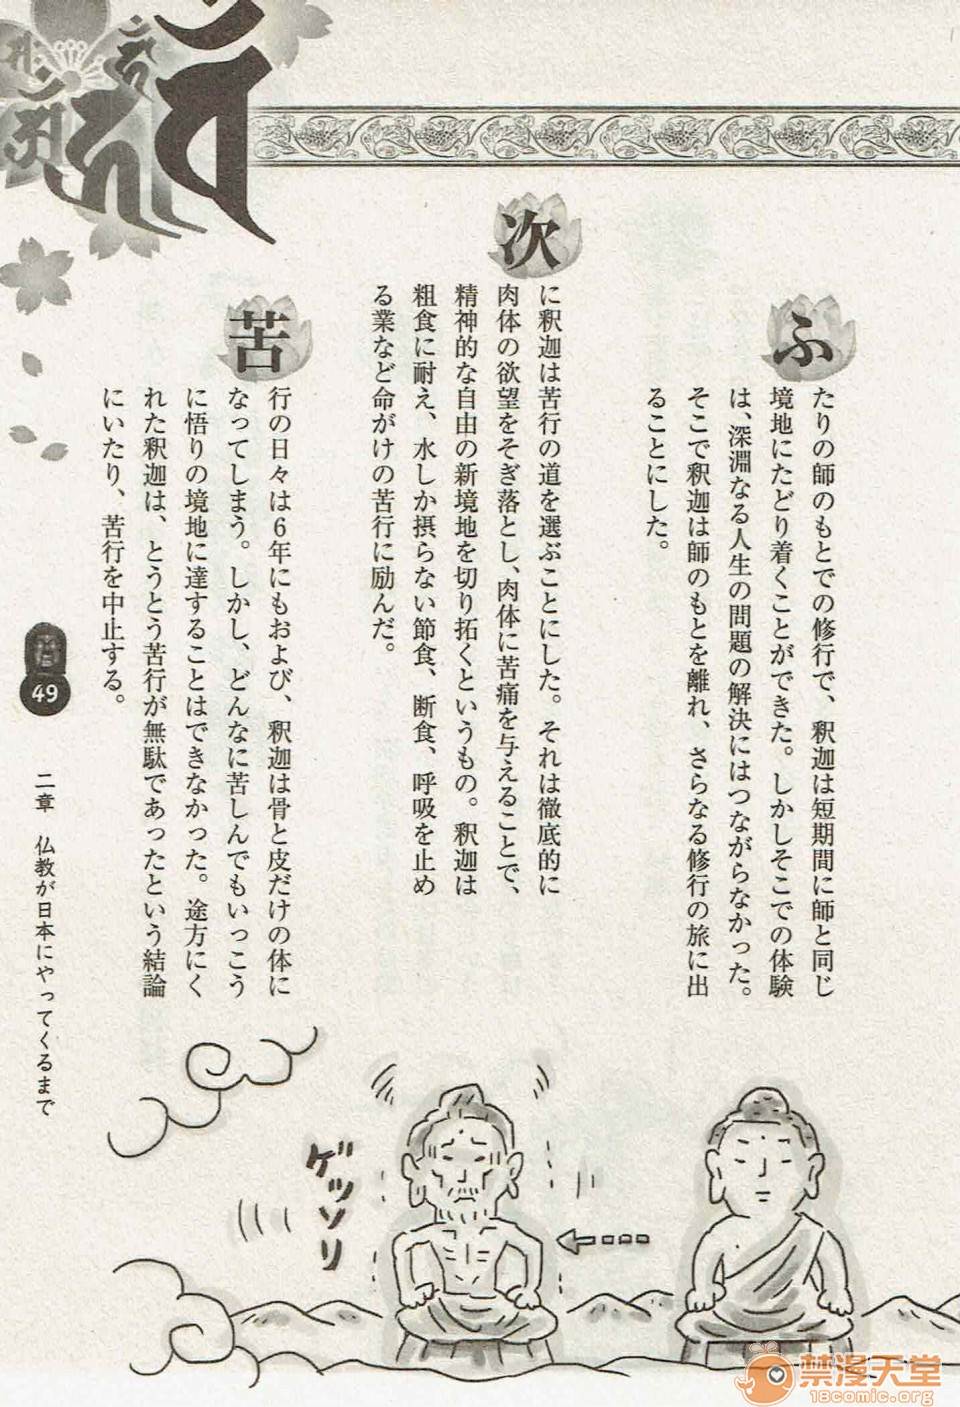 ふたりの師のもとでの修行で、釈迦は短期間に師と同じ
境地にたどり着くことができた。しかしそこでの体験
は、深淵なる人生の問題の解決にはつながらなかった。
そこで釈迦は師のもとを離れ、さらなる修行の旅に出
ることにした。
次に釈迦は苦行の道を選ぶことにした。それは徹底的に
肉体の欲望をそぎ落とし、肉体に苦痛を与えることで、
精神的な自由の新境地を切り拓くというもの。釈迦は
粗食に耐え、水しか摂らない節食、断食、呼吸を止め
る業など命がけの苦行に励んだ。
苦行の日々は6年にもおよび、釈迦は骨と皮だけの体に
なってしまう。しかし、どんなに苦しんでもいっこう
に悟りの境地に達することはできなかった。途方にく
れた釈迦は、とうとう苦行が無駄であったという結論
にいたり、苦行を中止する。
ゲッソリ
49
二章 仏教が日本にやってくるまで
禁漫天堂
18comic.org